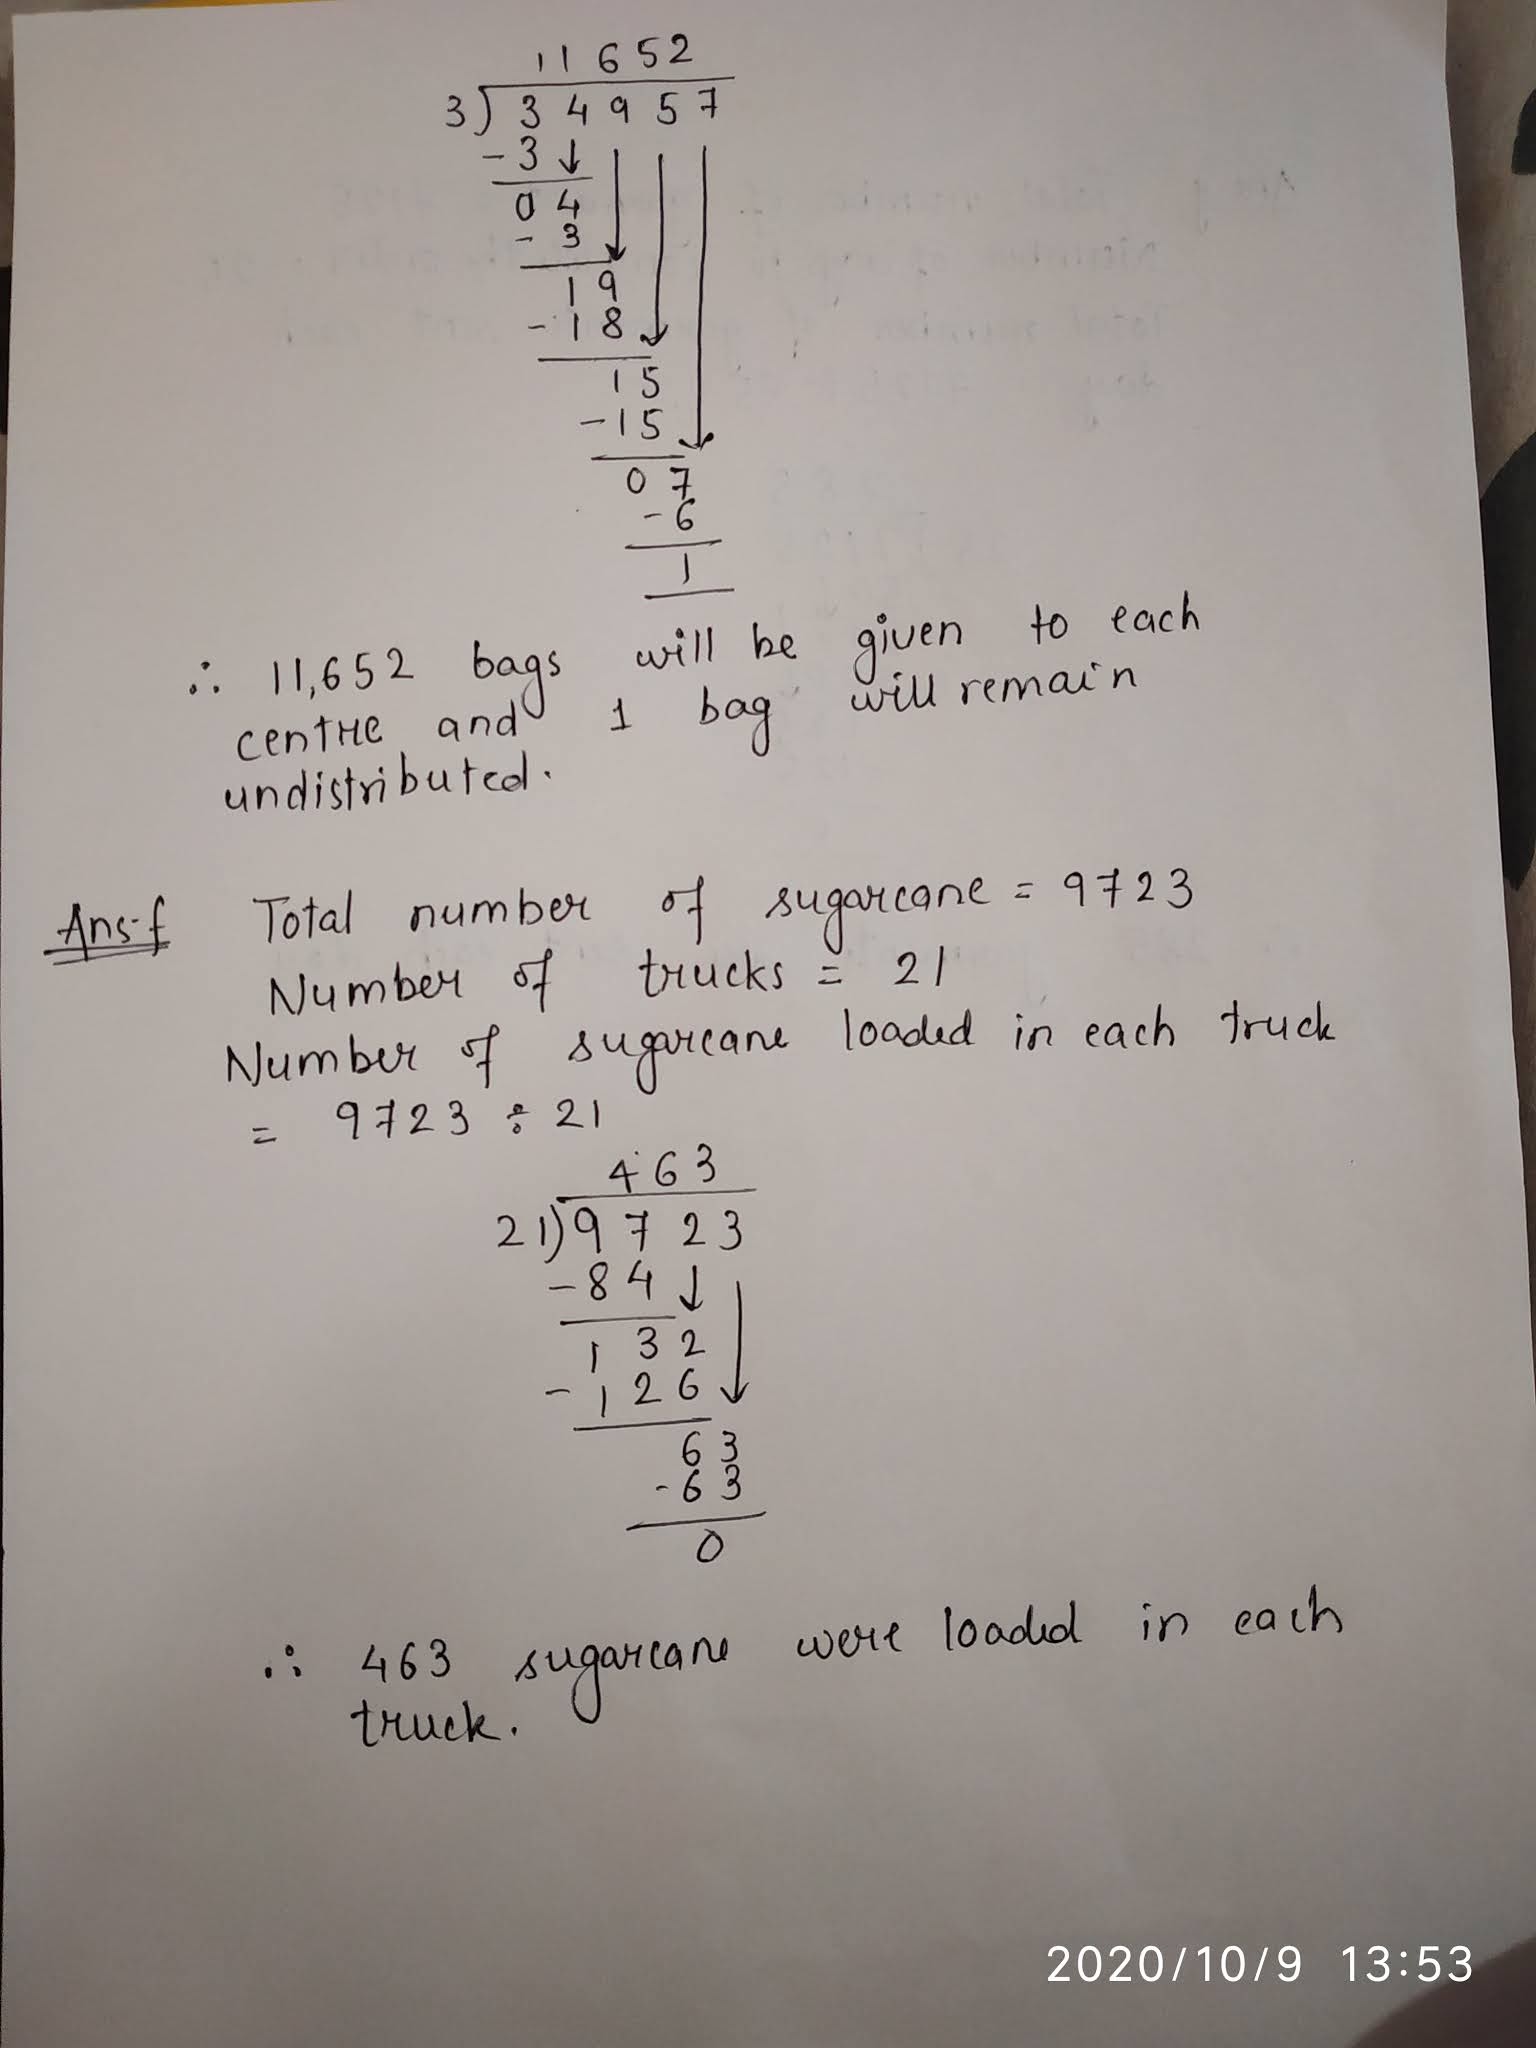 11652
3)34957
-3
04
-3
19
-18
15
-15
07
-6
1
∴ 11,652 bags will be given to each
centre and 1 bag will remain
undistributed.
Ans-f Total number of sugarcane = 9723
Number of trucks = 21
Number of sugarcane loaded in each truck
= 9723 ÷ 21
463
21)9723
-84
132
-126
63
-63
0
∴ 463 sugarcane were loaded in each
truck.
2020/10/9 13:53